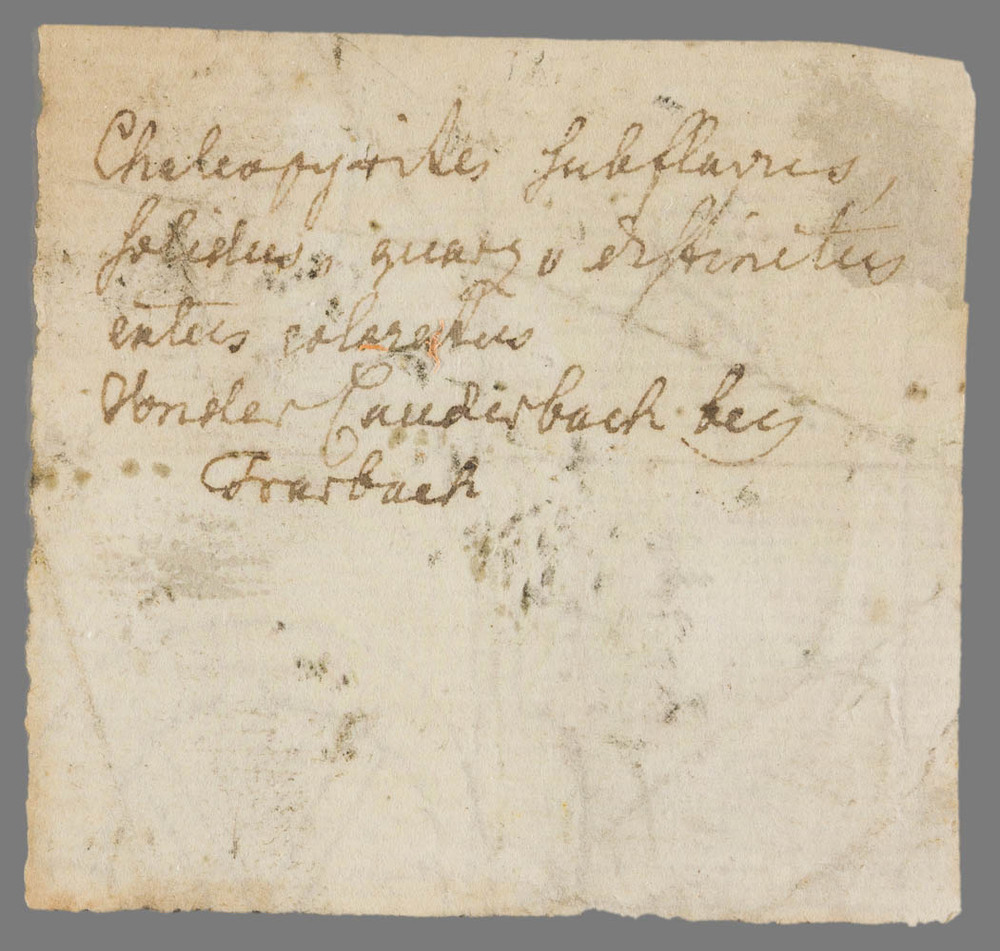 Chalcopyrites subflavus,
solidus, quarzo distinctus
extus coloratus
Von der Cauderbach bey
Trarbach